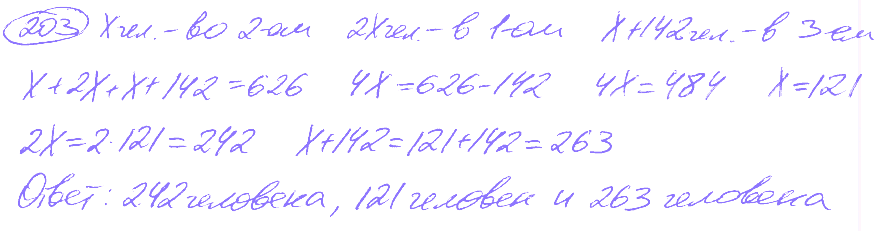 203 X чел. - во 2-ом 2X чел. - в 1-ом X+142 чел. - в 3-ем
X+2X+X+142=626 4X=626-142 4X=484 X=121
2X=2·121=242 X+142=121+142=263
Ответ: 242 человека, 121 человек и 263 человека